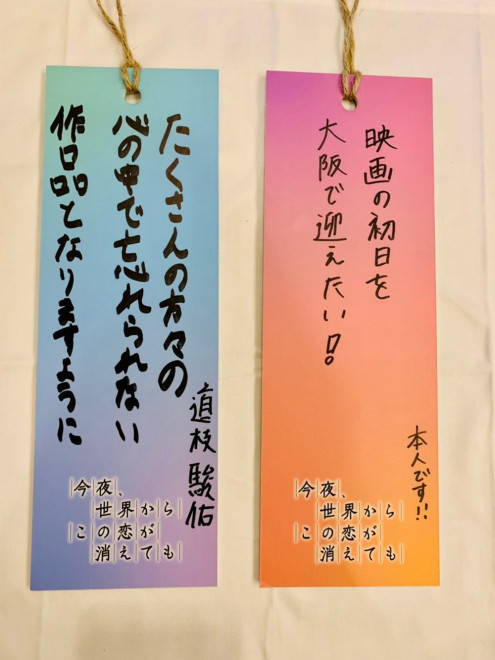 たくさんの方々の
心の中で忘れられない
作品となりますように
道枝駿佑
今夜、
世界から
この恋が
消えても
映画の初日を
大阪で迎えたい!
本人です!!
今夜、
世界から
この恋が
消えても